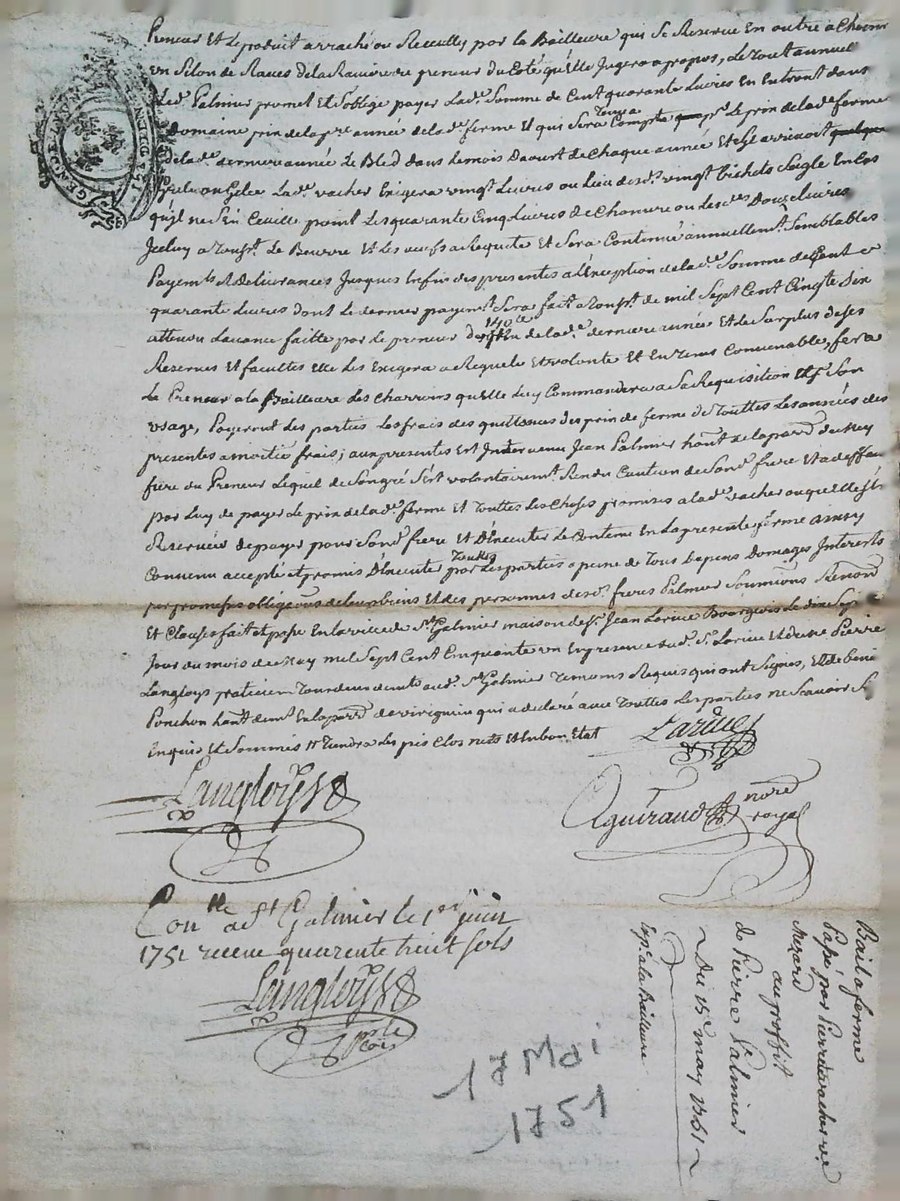 GEN ET PA DE LYON
Preneur Et le produit arraché ou Recueilly par la Bailleure qui Se Reserve En outre a Choisir
un Sillon de Raves dela Raviere du preneur du Coté qu'elle Jugera a propos, Le Tout annuel
Led. Palmier promet Et s'oblige payer Lad. Somme de Cent quarante Livres En Entrant dans
Domaine prix dela pre année dela d. ferme Et qui Sera Tenüe Compte sur le prix dela de ferme
dela de. derniere année Le Bled dans le mois Daoust de Chaque année Et S'il arrivoit quelque
Grele ou Gelée La de. vacher Exigera vingt Livres au Lieu desd. vingt Bichets Seigle En Cas
qu'il ne S'En Cueille point Les quarante Cinq Livres de Chanvre ou Les des Douze Livres
Iceluy a Toussts. Le Beurre Et Les oeufs a Requete Et Sera Continué annuellemt. Semblables
Payemts. Et Delivrances Jusques En fin des presentes a l'Exception dela de. Somme de Cent
quarante Livres dont Le dernier payemt. Sera fait a Toussts. de mil Sept Cent Cinqte Six
attendu Lavance faitte par Le preneur des 140 lt dela de. derniere année Et de Surplus de Ses
Reserves Et facultés Elle Les Exigera a Requete Et volonté Et En Tems Convenable, fera
Le Preneur a la Bailleure des Charrois qu'elle Luy Commandera a Sa Requisition Et pr Son
usage, Payeront Les parties Les frais des quittances des prix de ferme de Touttes Les années des
presentes a moitié frais; aux presentes Est Intervenu Jean Palmier hant. de la parr. de
frere du Preneur Lequel de Son gré S'est volontairemt. Rendu Caution de Sond. frere Et a deffaut
par Luy de payer Le prix dela de. ferme Et Touttes Les Choses promises a la de. vacher ou quelle S'est
Reservée de payer pour Sond. frere Et D'Executer Le Contenu En La presente ferme ainsy
Convenu accepté et promis D'Executer Toutes par Les parties a peine de Tous Depens Domages Interests
par promesses obligeons de leurs biens Et des personnes desd. freres Palmier Soumissions Renonons
Et Clauses fait et passé En la ville de St. Galmier maison de Sr. Jean Larive Bourgeois Le dix Sept
Jour du mois de May mil Sept Cent Cinquante un En presence dud. Sr. Larive Et de me Pierre
Langloys praticien Tous deux demts. aud. St. Galmier Temoins Requis qui ont Signés, Et de Benoit
Ponchon hant. dem. En la parr. de virigneu qui a declaré avec Touttes Les parties ne Scavoir Signer
Enquis Et Sommés Il Tiendra Les prés Clos nets Et En bon Etat
Larive
Langloys
Aguiraud nore royal
Conlle a St Galmier le 1er juin
1751 receu quarente huit sols
Langloys
17 Mai
1751
Bail a ferme
Passé par Pierre vacher ve.
Mezard
au proffit
de Pierre Palmier
Du 15e may 1751
Exp. a la Bailleure